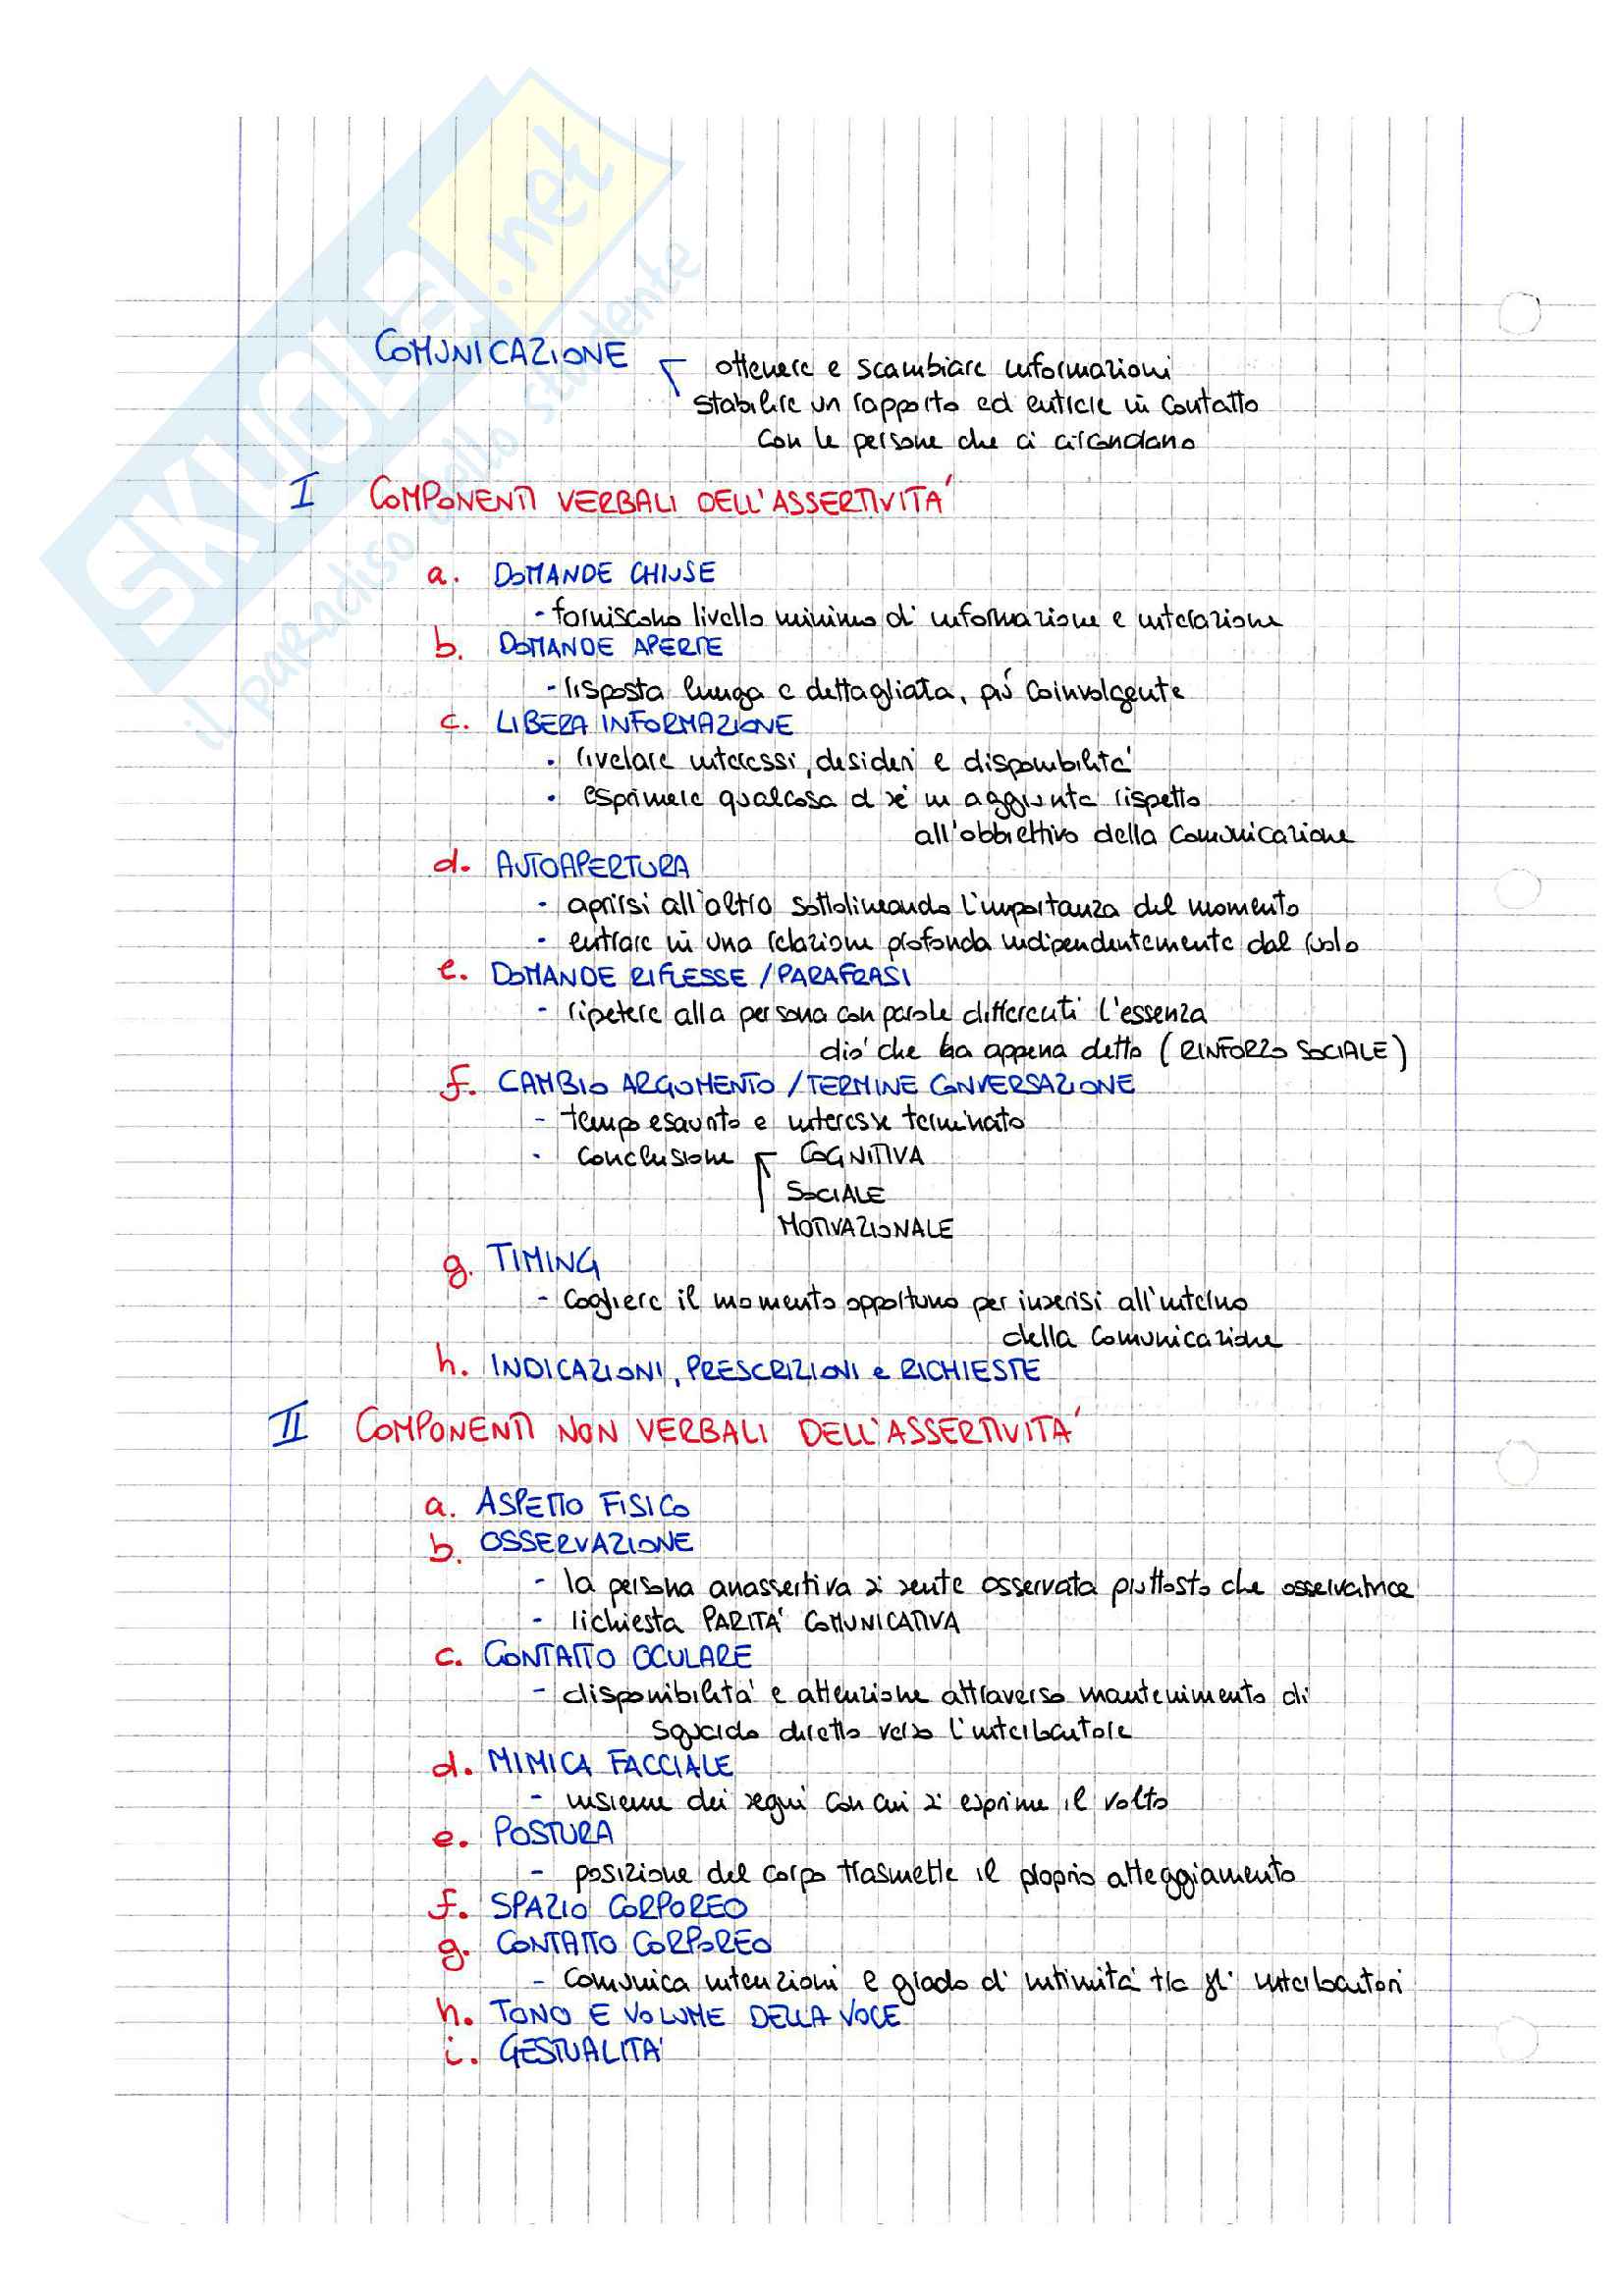 SKUOLA.net
il paradiso dello studente
COMUNICAZIONE ottenere e scambiare informazioni
stabilire un rapporto ed entrare in contatto
con le persone che ci circondano
I COMPONENTI VERBALI DELL'ASSERTIVITA'
a. DOMANDE CHIUSE
- forniscono livello minimo di informazione e interazione
b. DOMANDE APERTE
- risposta lunga e dettagliata, più coinvolgente
c. LIBERA INFORMAZIONE
• rivelare interessi, desideri e disponibilità
• esprimere qualcosa di sé in aggiunta rispetto
all'obbiettivo della comunicazione
d. AUTOAPERTURA
- aprirsi all'altro sottolineando l'importanza del momento
- entrare in una relazione profonda indipendentemente dal ruolo
e. DOMANDE RIFLESSE / PARAFRASI
- ripetere alla persona con parole differenti l'essenza
di ciò che ha appena detto (RINFORZO SOCIALE)
f. CAMBIO ARGOMENTO / TERMINE CONVERSAZIONE
- tempo esaurito e interesse terminato
- conclusione COGNITIVA
SOCIALE
MOTIVAZIONALE
g. TIMING
- cogliere il momento opportuno per inserisi all'interno
della comunicazione
h. INDICAZIONI, PRESCRIZIONI e RICHIESTE
II COMPONENTI NON VERBALI DELL'ASSERTIVITA'
a. ASPETTO FISICO
b. OSSERVAZIONE
- la persona anassertiva si sente osservata piuttosto che osservatrice
- richiesta PARITA' COMUNICATIVA
c. CONTATTO OCULARE
- disponibilità e attenzione attraverso mantenimento di
sguardo diretto verso l'interlocutore
d. MIMICA FACCIALE
- insieme dei segni con cui si esprime il volto
e. POSTURA
- posizione del corpo trasmette il proprio atteggiamento
f. SPAZIO CORPOREO
g. CONTATTO CORPOREO
- comunica intenzioni e grado di intimità tra gli interlocutori
h. TONO E VOLUME DELLA VOCE
i. GESTUALITA'